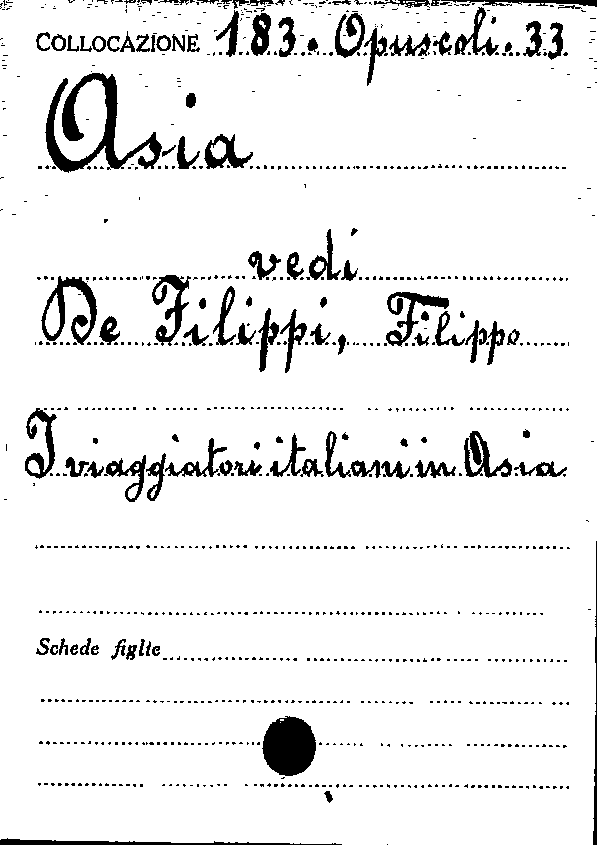 COLLOCAZIONE 183. Opuscoli. 33
Asia
vedi
De Filippi, Filippo
I viaggiatori italiani in Asia
Schede figlie